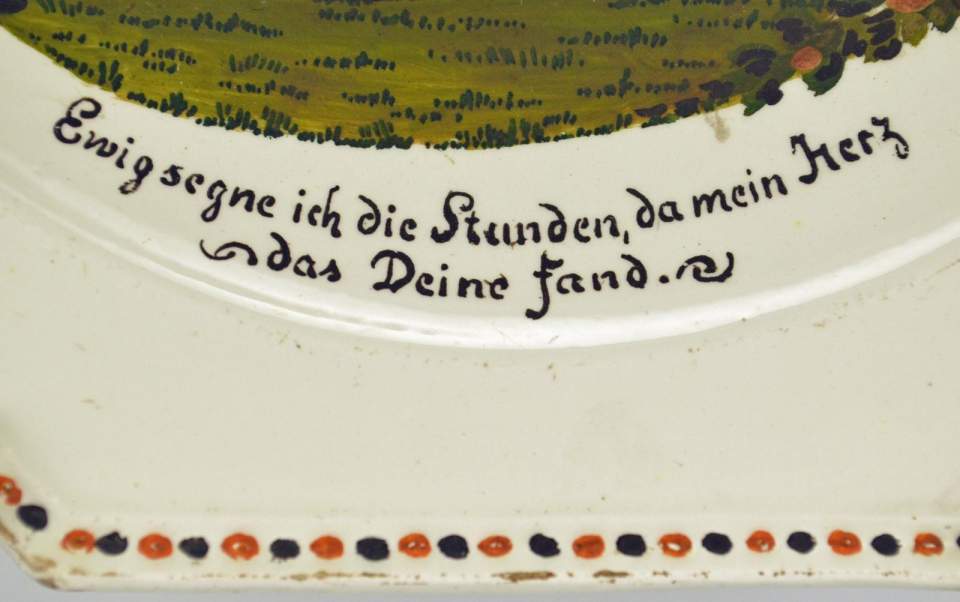 Ewig segne ich die Stunden, da mein Herz
das Deine fand.